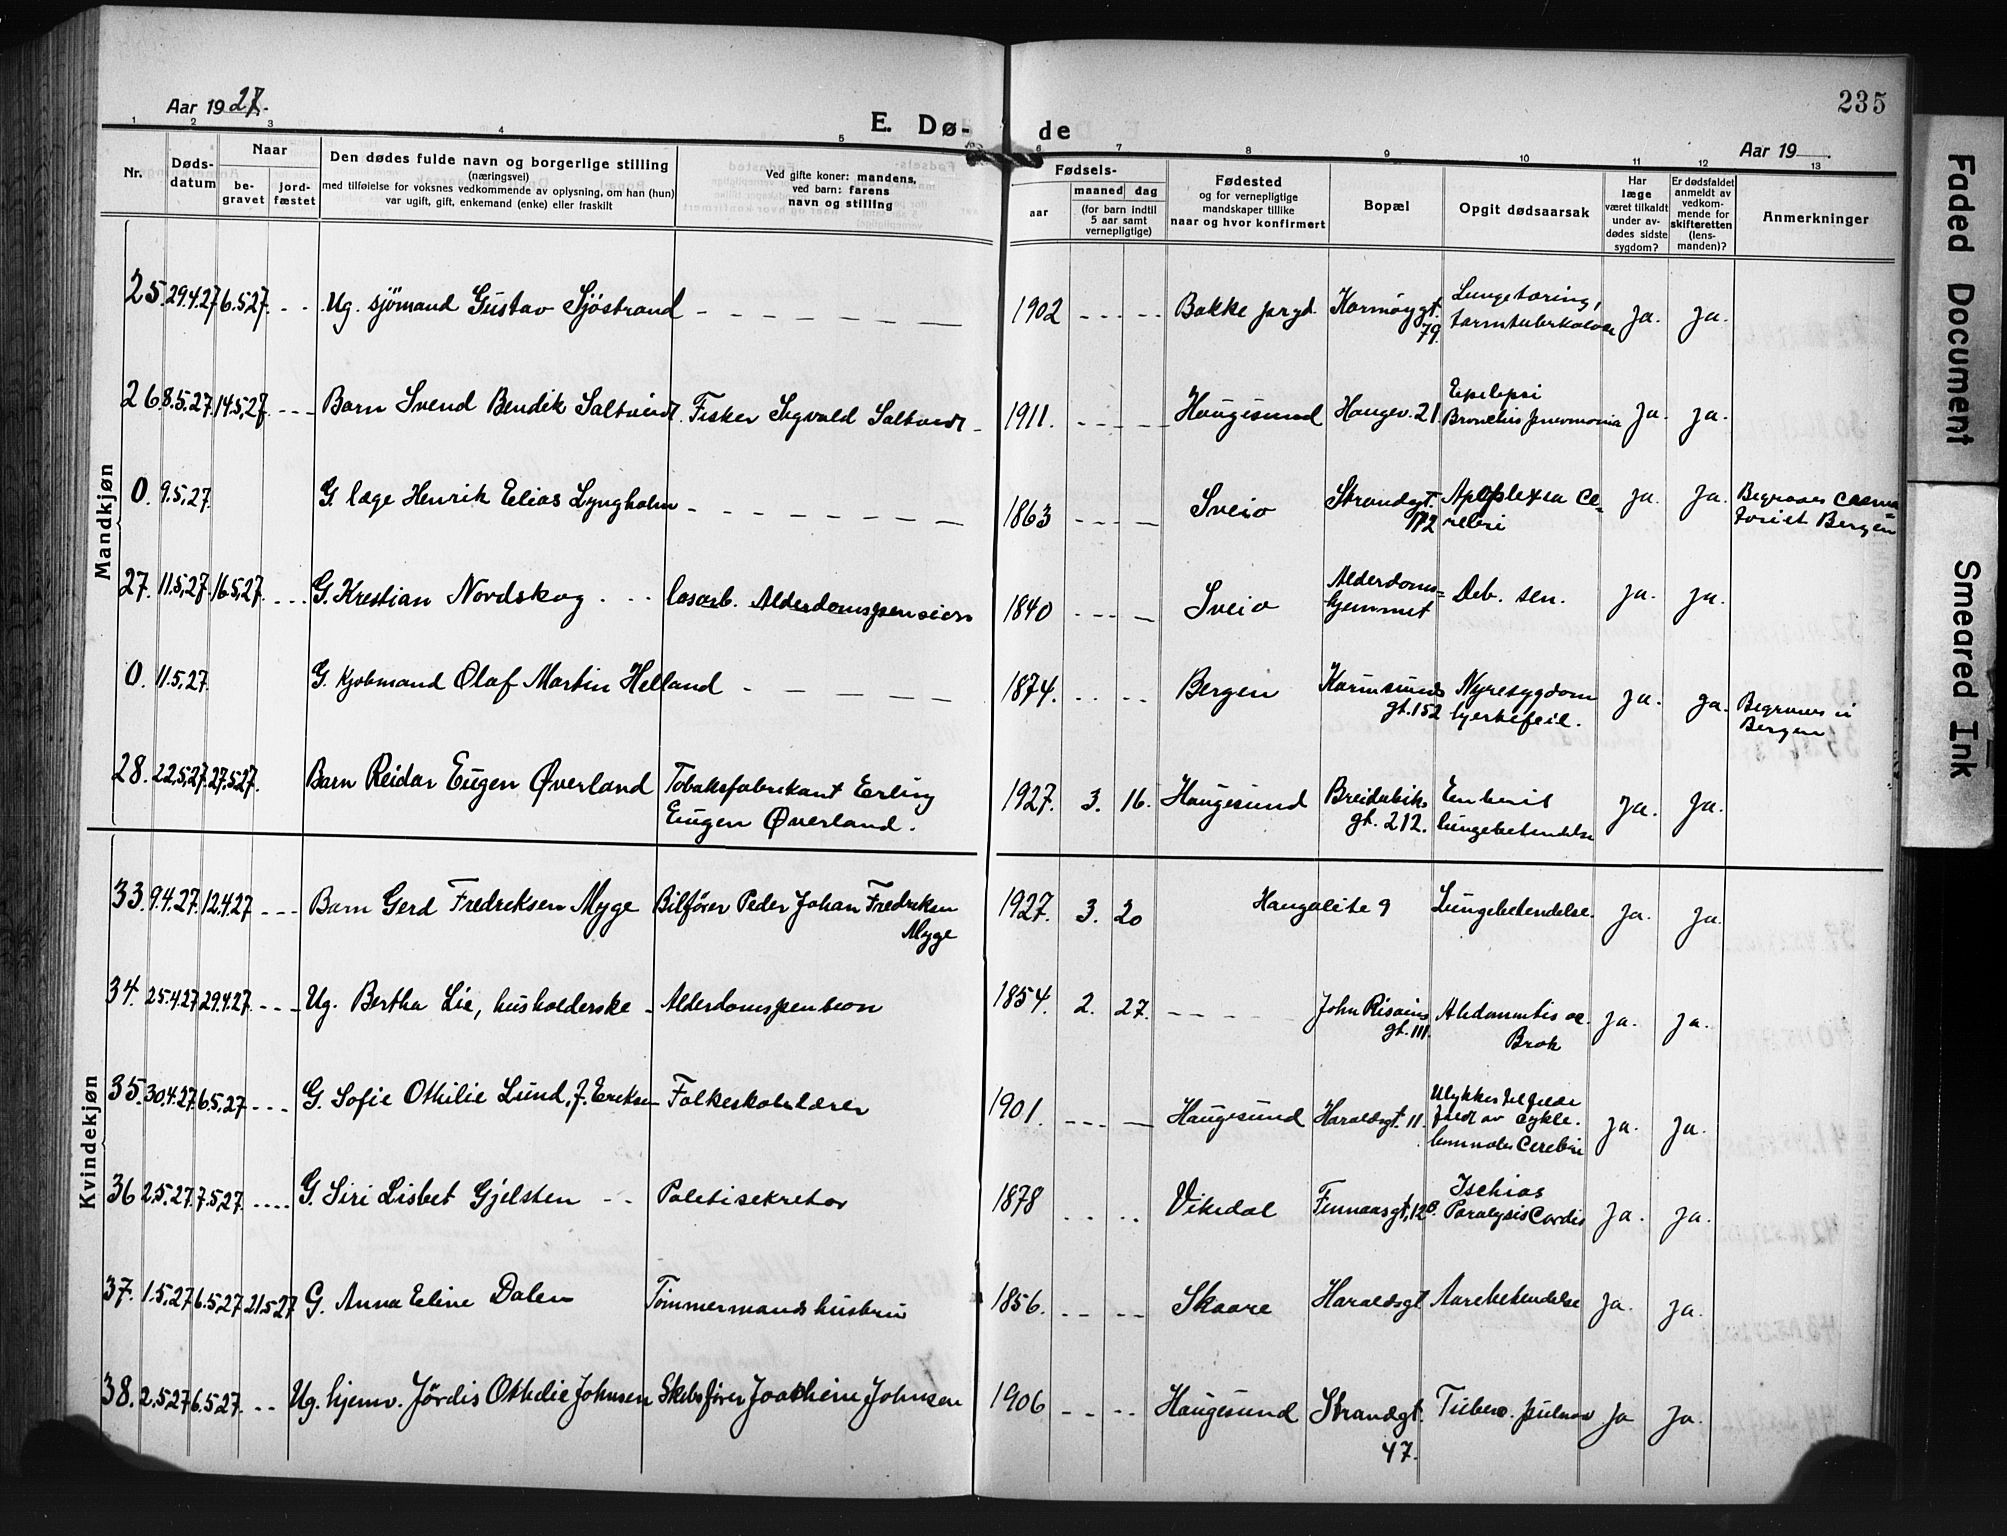 Aar 1927.
E. Dø-
de
Aar 19
235
1 2 3 4 5 6 7 8 9 10 11 12 13
Nr.
Døds-
datum
Naar
be-
gravet
jord-
fæstet
Den dødes fulde navn og borgerlige stilling
(næringsvei)
med tilføielse for voksnes vedkommende av oplysning, om han (hun)
var ugift, gift, enkemand (enke) eller fraskilt
Ved gifte koner: mandens,
ved barn: farens
navn og stilling
Fødsels-
aar
maaned
dag
(for barn indtil
5 aar samt
vernepligtige)
Fødested
og for vernepligtige
mandskaper tillike
naar og hvor konfirmert
Bopæl
Opgit dødsaarsak
Har
læge
været tilkaldt
under av-
dødes sidste
sygdom?
Er dødsfaldet
anmeldt av
vedkom-
mende for
skifteretten
(lens-
manden)?
Anmerkninger
Mandkjøn
25. 29.4.27 6.5.27. - - Ug. sjömand Gustav Sjöstrand - 1902 - - - - Bakke prgd. Karmøygt. 79. Lungetæring, tarmtuberkulose ja. ja.
26. 8.5.27. 14.5.27. - - - Barn Svend Bendik Saltveidt. Fisker Sigvald Saltveidt - 1911. - - - - Haugesund Haugev. 21. Epelepsi Bronchiis pneomonia ja. ja.
0. 9.5.27. G. læge Henrik Elias Lyngholm - 1863 - - - - Sveio Strandgt. 172 Apoplexia Ce= rebri ja. ja. Begraves Crema= toriet Bergen
27. 11.5.27. 16.5.27. - - - G. Kristian Nordskog - - løsarb. Alderdomspension 1840 - - - - Sveio Alderdoms= hjemmet Deb. sen. ja. ja.
0. 11.5.27. G. Kjøbmand Olaf Martin Helland - 1874. - - - - Bergen Karmsunds gt. 152 Nyresygdom hjertefeil. ja. ja. Begraves i Bergen
28. 22.5.27. 27.5.27. Barn Reidar Eugen Øverland Tobaksfabrikant Erling Eugen Øverland. 1927. 3. 16. Haugesund Breidabliks gt. 212. lungebetendelse ja. ja.
Kvindekjøn
33. 9.4.27. 12.4.27 - - - Barn Gerd Fredriksen Myge Bilfører Peder Johan Fredriksen Myge 1927. 3. 20 Haugalite 9 Lungebetendelse. ja. ja.
34. 25.4.27 29.4.27. - - - Ug. Bertha Lie, husholderske - Alderdomspension 1854. 2. 27. - - - - John Risøens gt. 111. Brok ja. ja.
35. 30.4.27. 6.5.27 - - - G. Sofie Othilie Lund, f. Eriksen Folkeskolelærer 1901. - - - - Haugesund Haraldsgt. 11. Ulykkestilfelde faldt av cykle. Cerebri ja. ja.
36 2.5.27. 7.5.27. - - - - G. Siri Lisbet Gjelsten - - Politisekretær 1878 - - - - Vikedal Finnaasgt. 12B. Ischias Paralysis Cordis ja. ja.
37. 1.5.27 6.5.27 21.5.27 G. Anna Eline Dalen Tømmermands hustru 1856. - - - - Skaare Haraldsgt. Aarebetendelse ja. ja.
38. 2.5.27 6.5.27. - - Ug. hjemv. Jørdis Othelie Johnsen Skibsfører Joachim Johnsen 1906 - - - - Haugesund Strandgt. 47. Tuberc. pulmo ja ja.
Faded Document
Smeared Ink